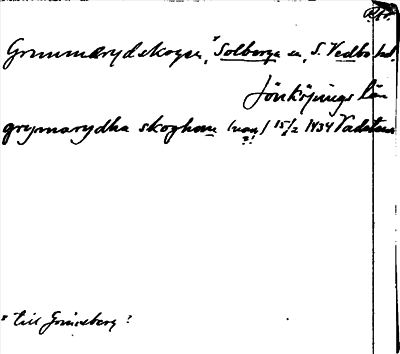 Grummarydskogen, x Solberga sn, S. Vedbo hd.
Jönköpings län
grymarydha skoghenn (nan) 15/2 1434 Vadstena
?!
x till Grimsberg?